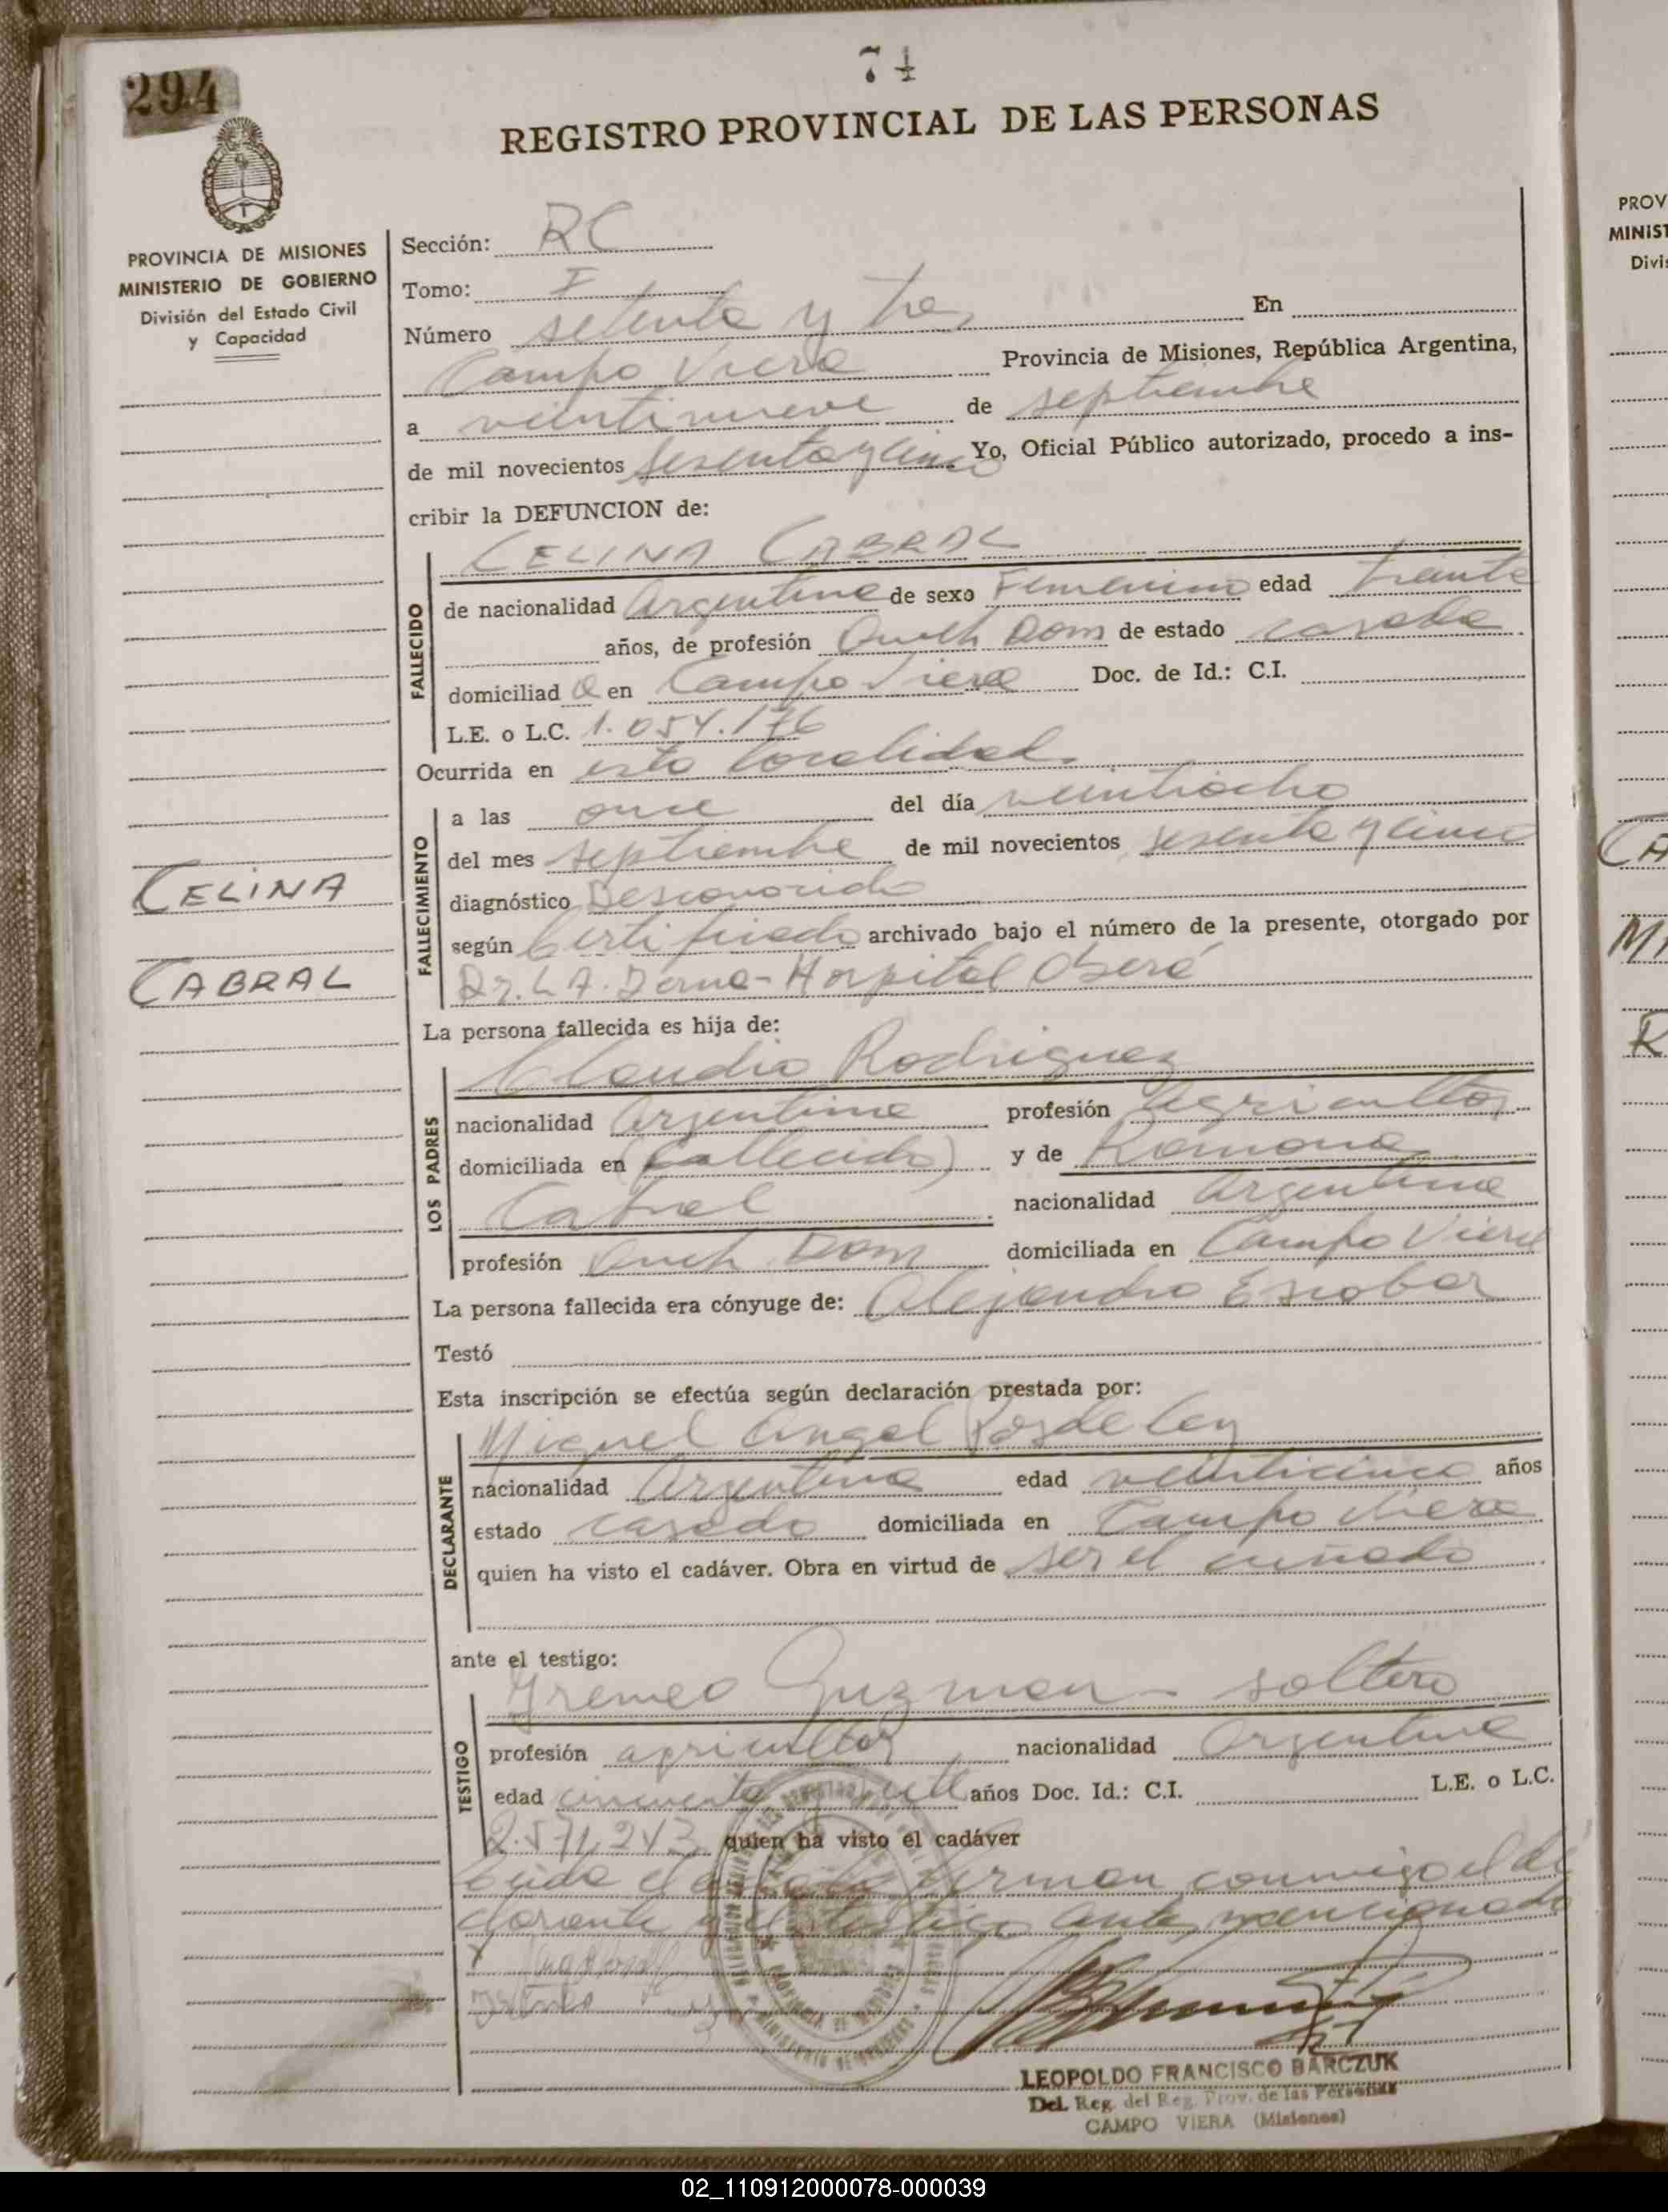 294
REGISTRO PROVINCIAL DE LAS PERSONAS
PROVINCIA DE MISIONES
MINISTERIO DE GOBIERNO
División del Estado Civil
y Capacidad
Sección: RC
Tomo: I
Número setenta y tres En
Campo Viera Provincia de Misiones, República Argentina,
a veintinueve de septiembre
de mil novecientos sesenta y cinco Yo, Oficial Público autorizado, procedo a ins-
cribir la DEFUNCION de:
FALLECIDO
CELINA CABRAL
de nacionalidad Argentina de sexo Femenino edad treinta
años, de profesión Dom de estado casada
domiciliad a en Campo Viera Doc. de Id.: C.I.
L.E. o L.C. 1.054.176
Ocurrida en esta localidad.
FALLECIMIENTO
a las once del día veintiocho
del mes septiembre de mil novecientos sesenta y cinco
diagnóstico Desconocido
según Certificado archivado bajo el número de la presente, otorgado por
Dr. L A. - Hospital Oberá
CELINA
CABRAL
La persona fallecida es hija de:
LOS PADRES
Claudio Rodriguez
nacionalidad Argentina profesión Agricultor
domiciliada en (fallecido) y de Ramona
Cabral nacionalidad Argentina
profesión Dom domiciliada en Campo Viera
La persona fallecida era cónyuge de: Alejandro Escobar
Testó
Esta inscripción se efectúa según declaración prestada por:
DECLARANTE
Miguel Angel
nacionalidad Argentina edad veinticinco años
estado casado domiciliada en Campo Viera
quien ha visto el cadáver. Obra en virtud de ser el cuñado
ante el testigo:
TESTIGO
Guzman - soltero
profesión agricultor nacionalidad Argentina
edad cincuenta y años Doc. Id.: C.I. L.E. o L.C.
2.571.243 quien ha visto el cadáver
Leida el acta la firman conmigo el de
clarante y el testigo antes mencionado
LEOPOLDO FRANCISCO BARCZUK
Del. Reg. del Reg. Prov. de las Personas
CAMPO VIERA (Misiones)
PROV
MINIST
Divis
02_110912000078-000039